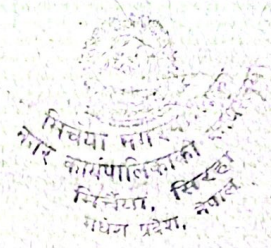 मिर्चैया नगर
नगर कार्यपालिकाको कार्यालय
मिर्चैया, सिरहा
मधेश प्रदेश, नेपाल